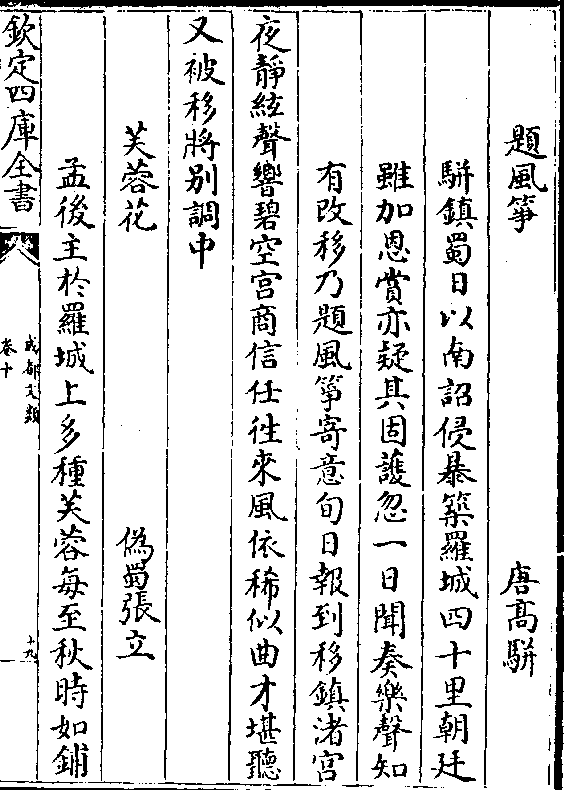 題風箏 唐高駢
駢鎮蜀日以南詔侵暴築羅城四十里朝廷
雖加恩賞亦疑其固護忽一日聞奏樂聲知
有改移乃題風箏寄意旬日報到移鎮渚宫
夜靜絃聲響碧空宫商信任徃來風依稀似曲才堪聽
又被移將別調中
芙蓉花 偽蜀張立
孟後主於羅城上多種芙蓉每至秋時如鋪
欽定四庫全書
成都文類
卷十
十九